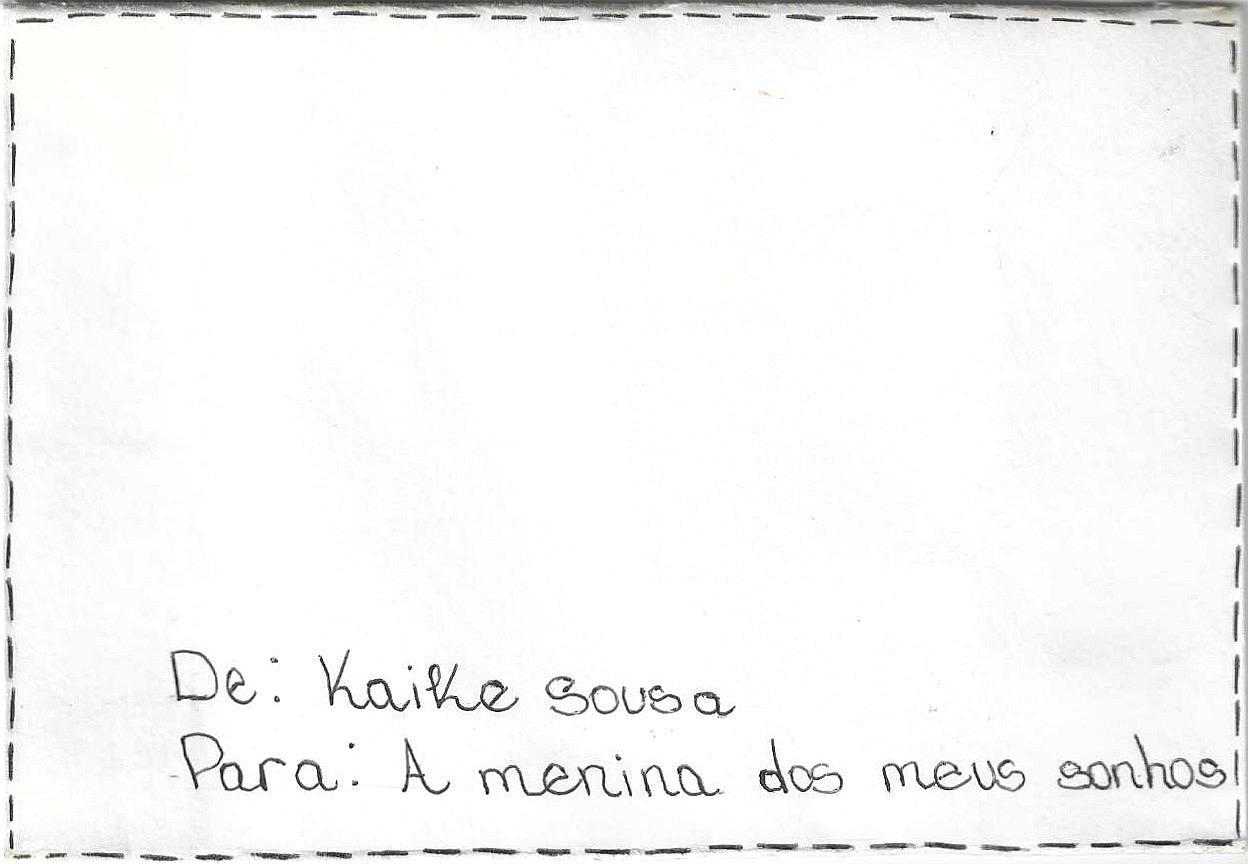 De: Kaike Sousa
Para: A menina dos meus sonhos